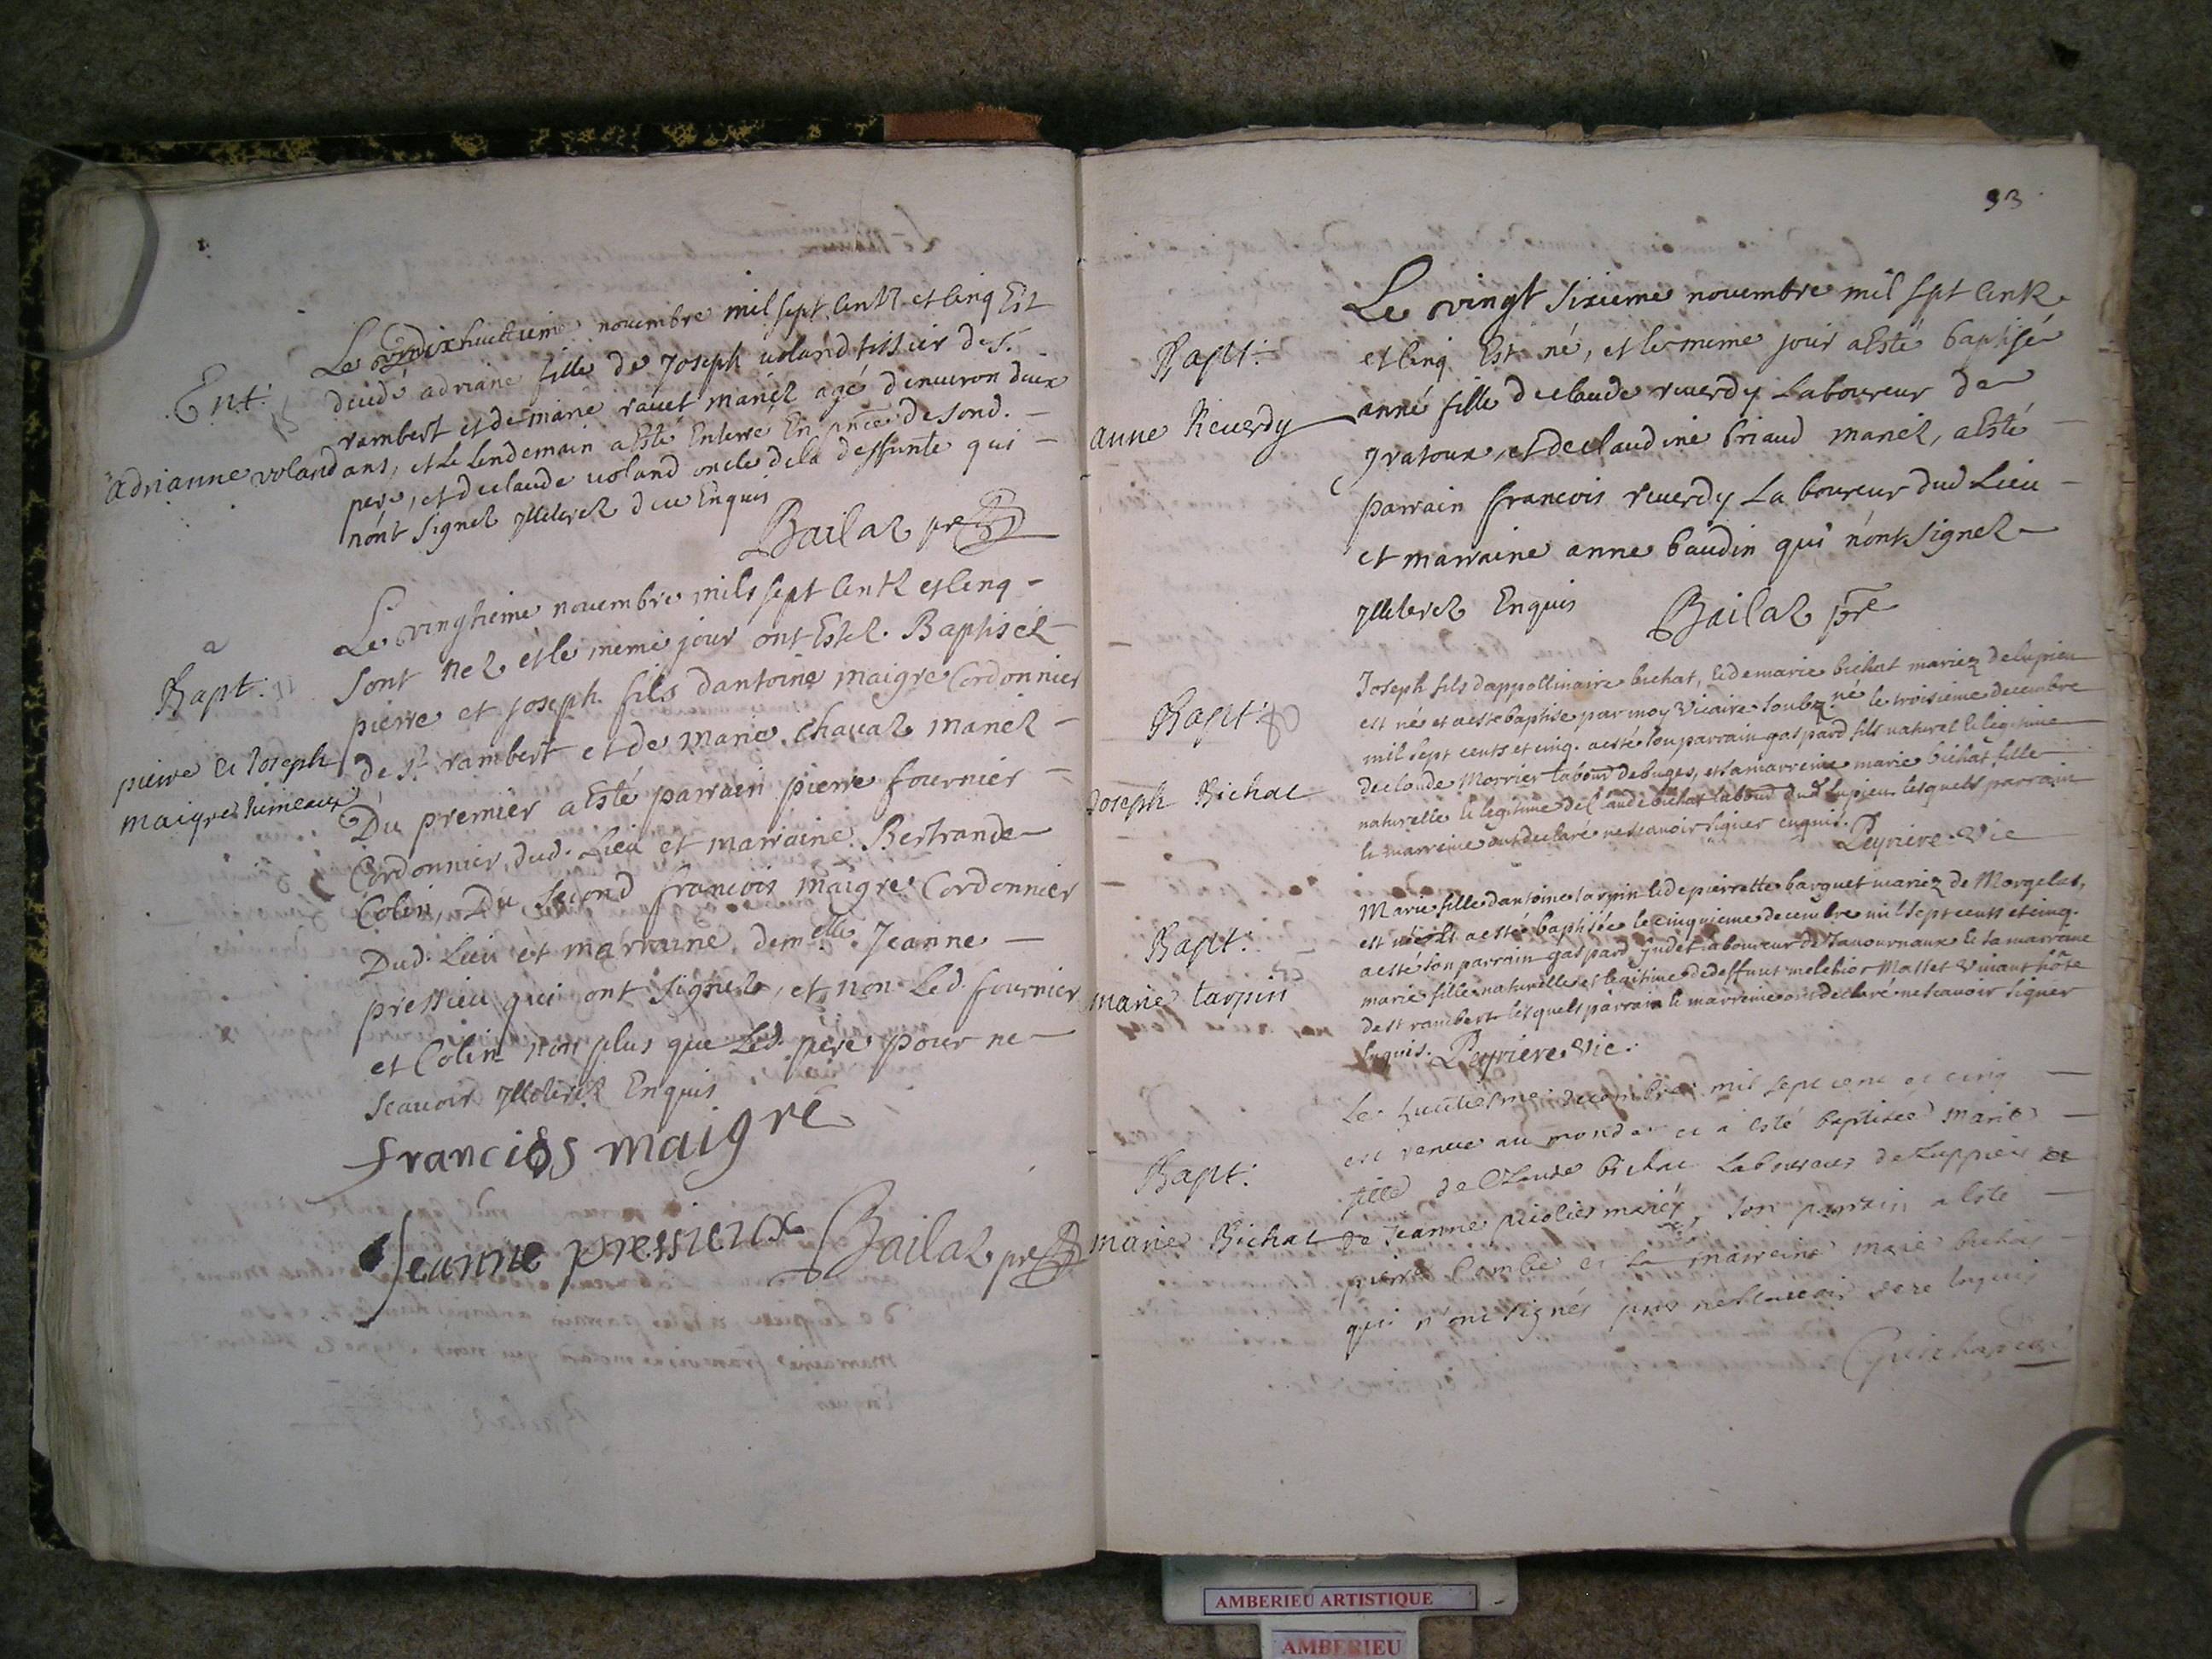 Ent:
adrianne voland
Le dixhuictieme novembre mil sept centz et cinq Est
decedé adriane fille de Joseph voland tissier de St
rambert et de marie ravet mariéz agé d'environ deux
ans, et le lendemain a Esté Enterré En pnce de sond.
pere, et de claude voland oncle de la deffunte qui
n'ont signez illiterez deue Enquis
Bailaz pre
Bapt:
pierre et Joseph
maigres iumeaux
Le vingtieme novembre mils sept centz et cinq
sont nez et le meme jour ont Estez Baptiséz
pierre et joseph fils dantoine maigre Cordonnier
de st rambert et de marie chavaz mariéz
Du premier a Esté parrain pierre fournier
Cordonnier dud. Lieu et marraine Bertrande
Colin, Du second francois maigre Cordonnier
Dud. Lieu et marraine demelle Jeanne
pressieu qui ont signez, et non Led. fournier
et Colin non plus que Led. pere pour ne
scavoir illiterez Enquis
franciõs maigre
Jeanne pressieux Bailaz pre
93
Bapt:
anne Reverdy
Le vingt sixieme novembre mil sept centz
et cinq Est né, et le meme jour a Esté baptisé
anne fille de claude reverdy Laboureur de
Jvatoux, et de claudine briaud mariéz, a Esté
parrain francois reverdy Laboureur dud Lieu
et marraine anne baudin qui n'ont signez
illiterez Enquis Bailaz pre
Bapt:
Joseph Bichat
Joseph fils d'appollinaire bichat, et de marie bichat mariez de lupieu
est né et a esté baptisé par moy Vicaire soubzné le troisieme decembre
mil sept cents et cinq. a esté son parrain gaspard fils naturel et legitime
de claude Morrier labour de buges, et sa marreine marie bichat fille
naturelle et legitime de Claude bichat labour dud lupieu lesquels parrain
et marreine ont declaré ne scavoir signer enquis. Peyriere Vic
Bapt:
marie tarpin
Marie fille dantoine tarpin et de pierrette barquet mariez de Morgelas,
est née et a esté baptisée le cinquieme decembre mil sept cents et cinq.
a esté son parrain gaspard Judet laboureur de Javournaux et sa marraine
marie fille naturelle et legitime de deffunt melchior Masset vivant hôte
de st rambert lesquels parrain et marreine ont declaré ne scavoir signer
enquis. Peyriere Vic.
Bapt:
marie Bichat
Le huictiesme decembre mil sept cent et cinq
est venue au monde et a esté baptisée marie
fille de Claude bichat Laboureur de Luppieu et
de Jeanne picolier mariéz, son parrain a esté
pierre Combe et sa marreine marie bichat
qui n'ont signés pour ne scavoir de ce enquis
AMBERIEU ARTISTIQUE
AMBERIEU